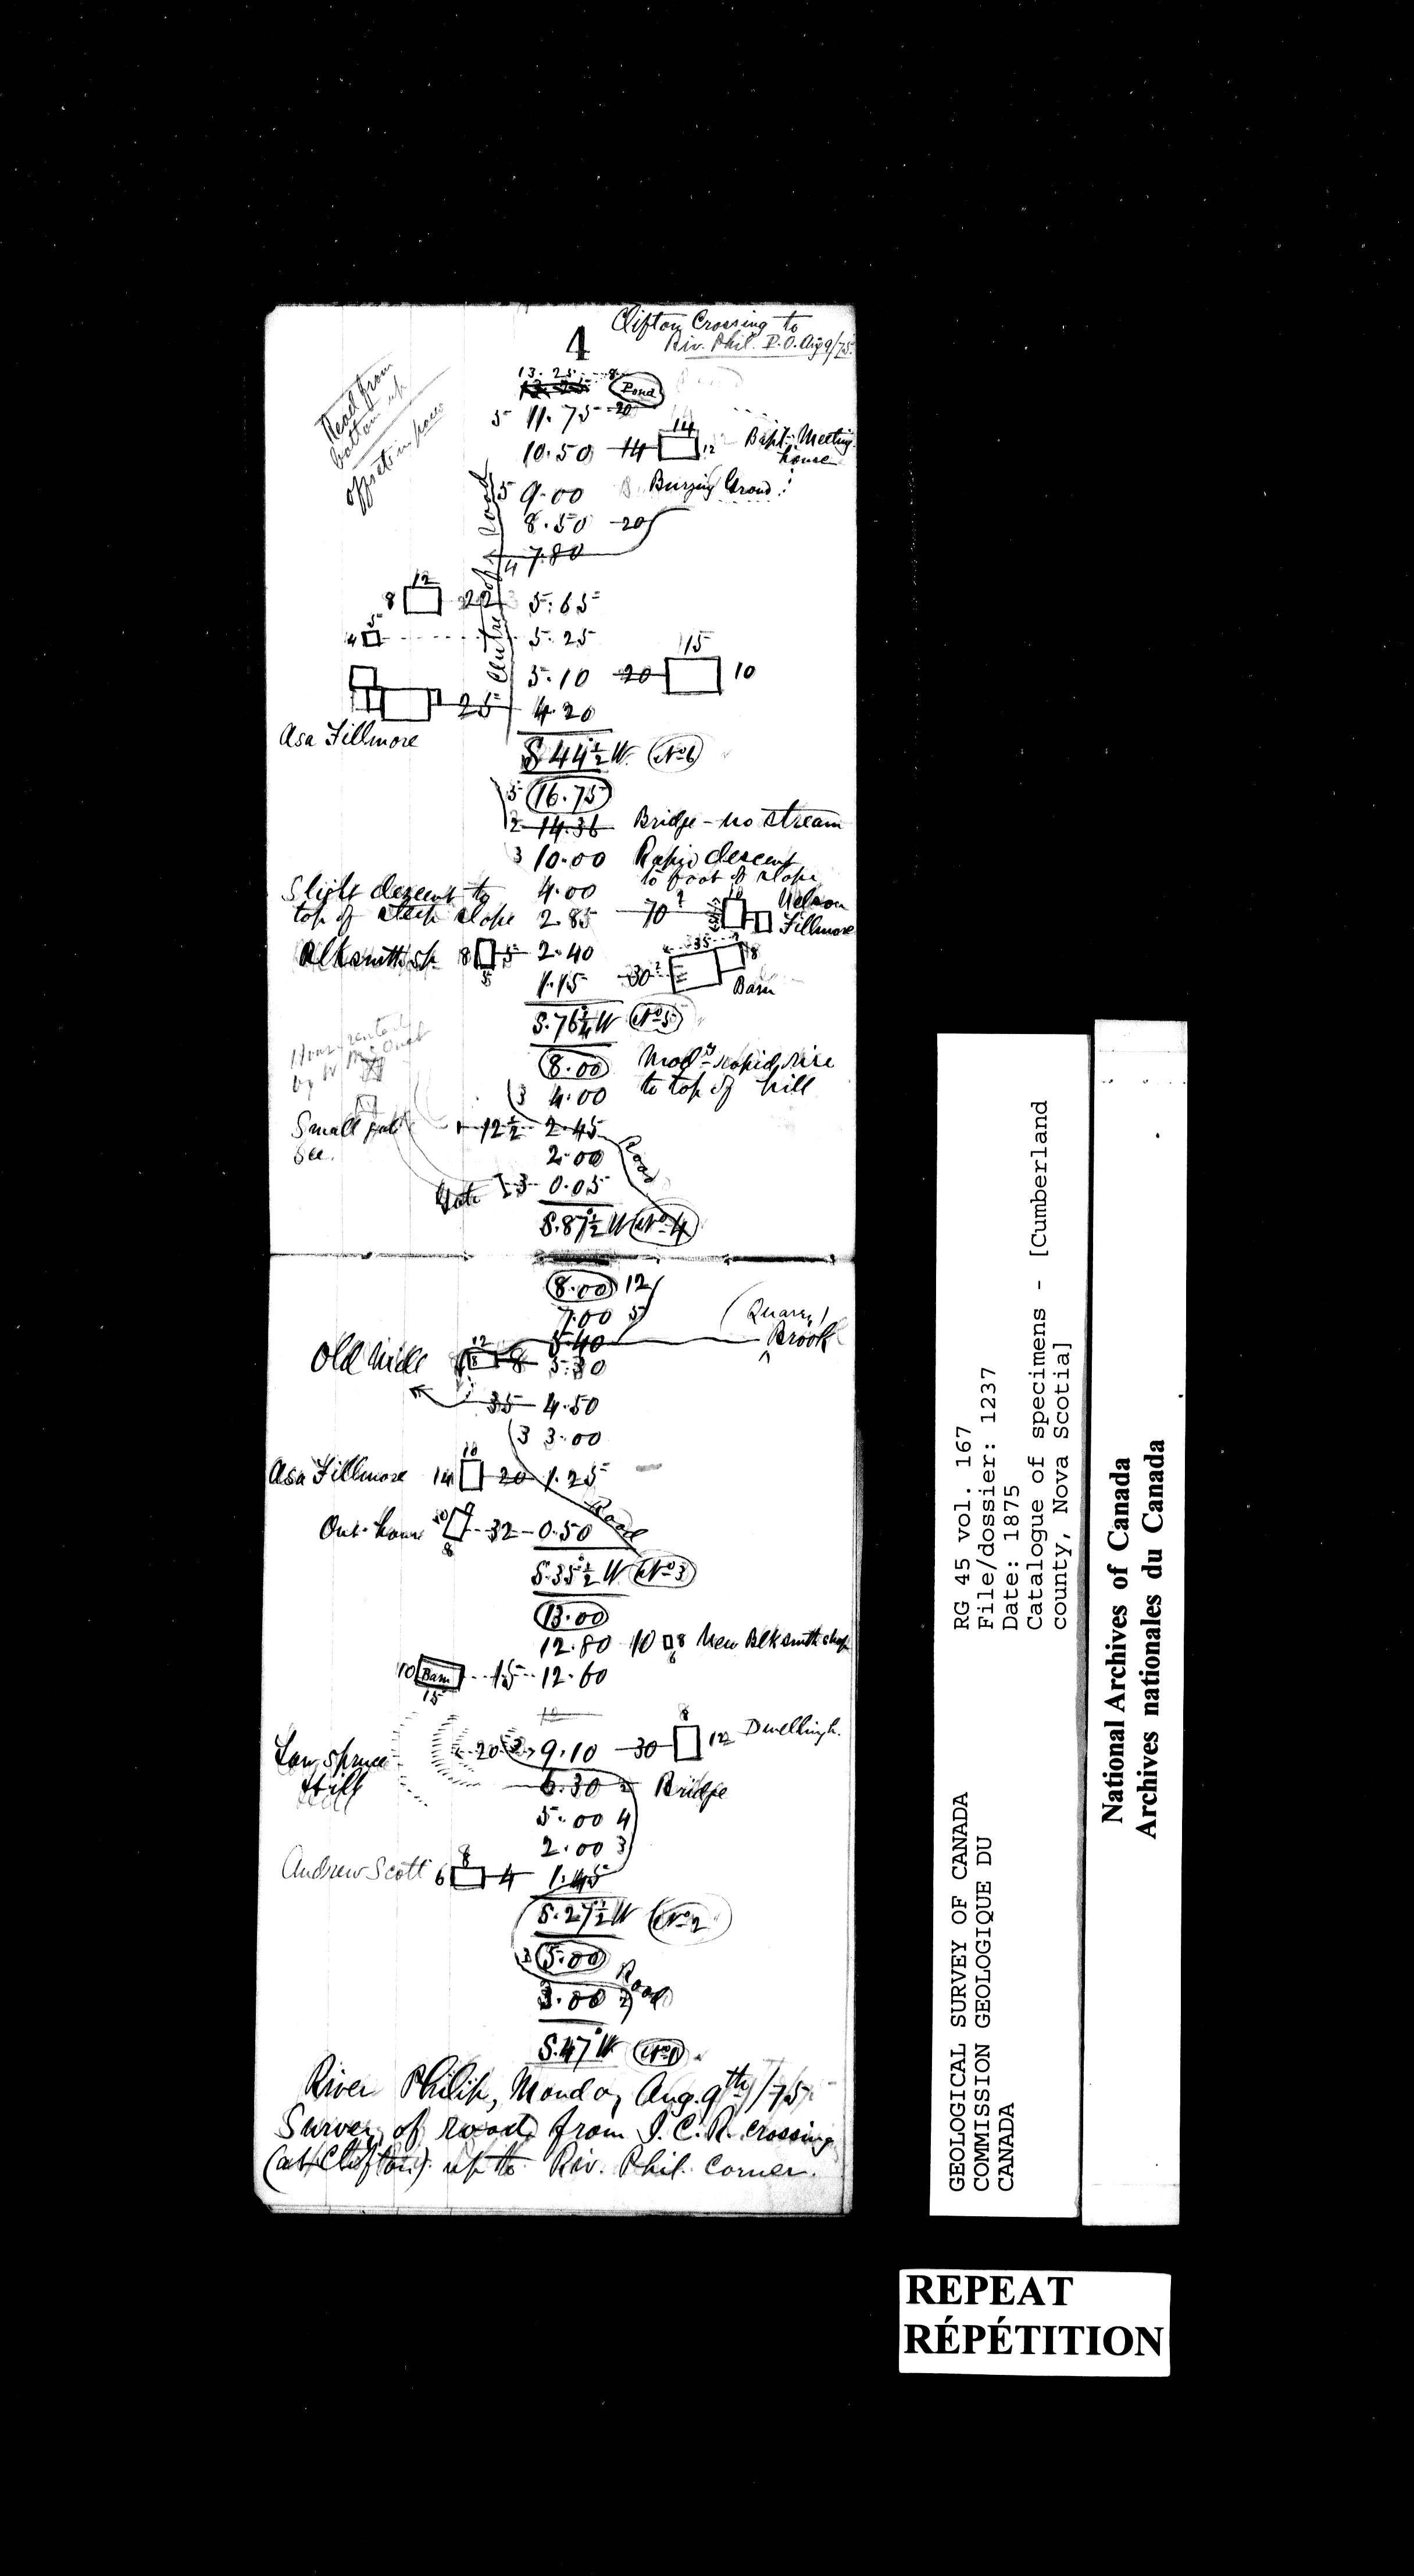 4
Clifton Crossing to
Riv. Phil. P.O. Aug 9/75
Read from
bottom up
offsets in paces
13.25 8
Pond
5 11.75 20
14
10.50 14 12 Bapt. Meeting
house
5 9.00 8 Burying Ground
8.50 20
4 7.80
Centre of Road
12
8 22 5.65
5
4 5.25
15
5.10 20 10
25 4.20
Asa Fillmore
S 44½° W. No 6
5 16.75
2 14.36 Bridge - no stream
3 10.00 Rapid descent
to foot of slope
Slight descent to 4.00
top of steep slope 2.85 70? 10 Nelson
Fillmore
Blksmith sh. 8 5 2.40
5
35 8
1.15 30? Barn
S. 76½° W No 5
8.00 Modly rapid rise
to top of hill
House rented
by
3 4.00
Small 12½ 2.45
2.00
Road
Gate 3 0.05
S. 87½° W No 4
8.00 12
7.00 5
(Quarry)
5.40 Brook
12
Old Mill 8 8 5.30
35 4.50
3 3.00
10
Asa Fillmore 14 20 1.25
Road
Out-house 10 32 0.50
8
S. 35½° W No 3
13.00
12.80 10 8 New Blksmith shop
6
10 Barn 15 12.60
15
8
20 3 9.10 30 12 Dwelling h.
Low spruce
Hill
6.30 2 Bridge
5.00 4
2.00 3
8
Andrew Scott 6 4 1.45
S. 27½° W No 2
3 5.00
Road
3.00 2
S. 47° W. No 1
River Philip, Monday Aug. 9th/75
Survey of road from I.C.R. crossing
(at Clifton) up to Riv. Phil. Corner.
GEOLOGICAL SURVEY OF CANADA
COMMISSION GEOLOGIQUE DU
CANADA
RG 45 vol. 167
File/dossier: 1237
Date: 1875
Catalogue of specimens - [Cumberland
county, Nova Scotia]
National Archives of Canada
Archives nationales du Canada
REPEAT
RÉPÉTITION